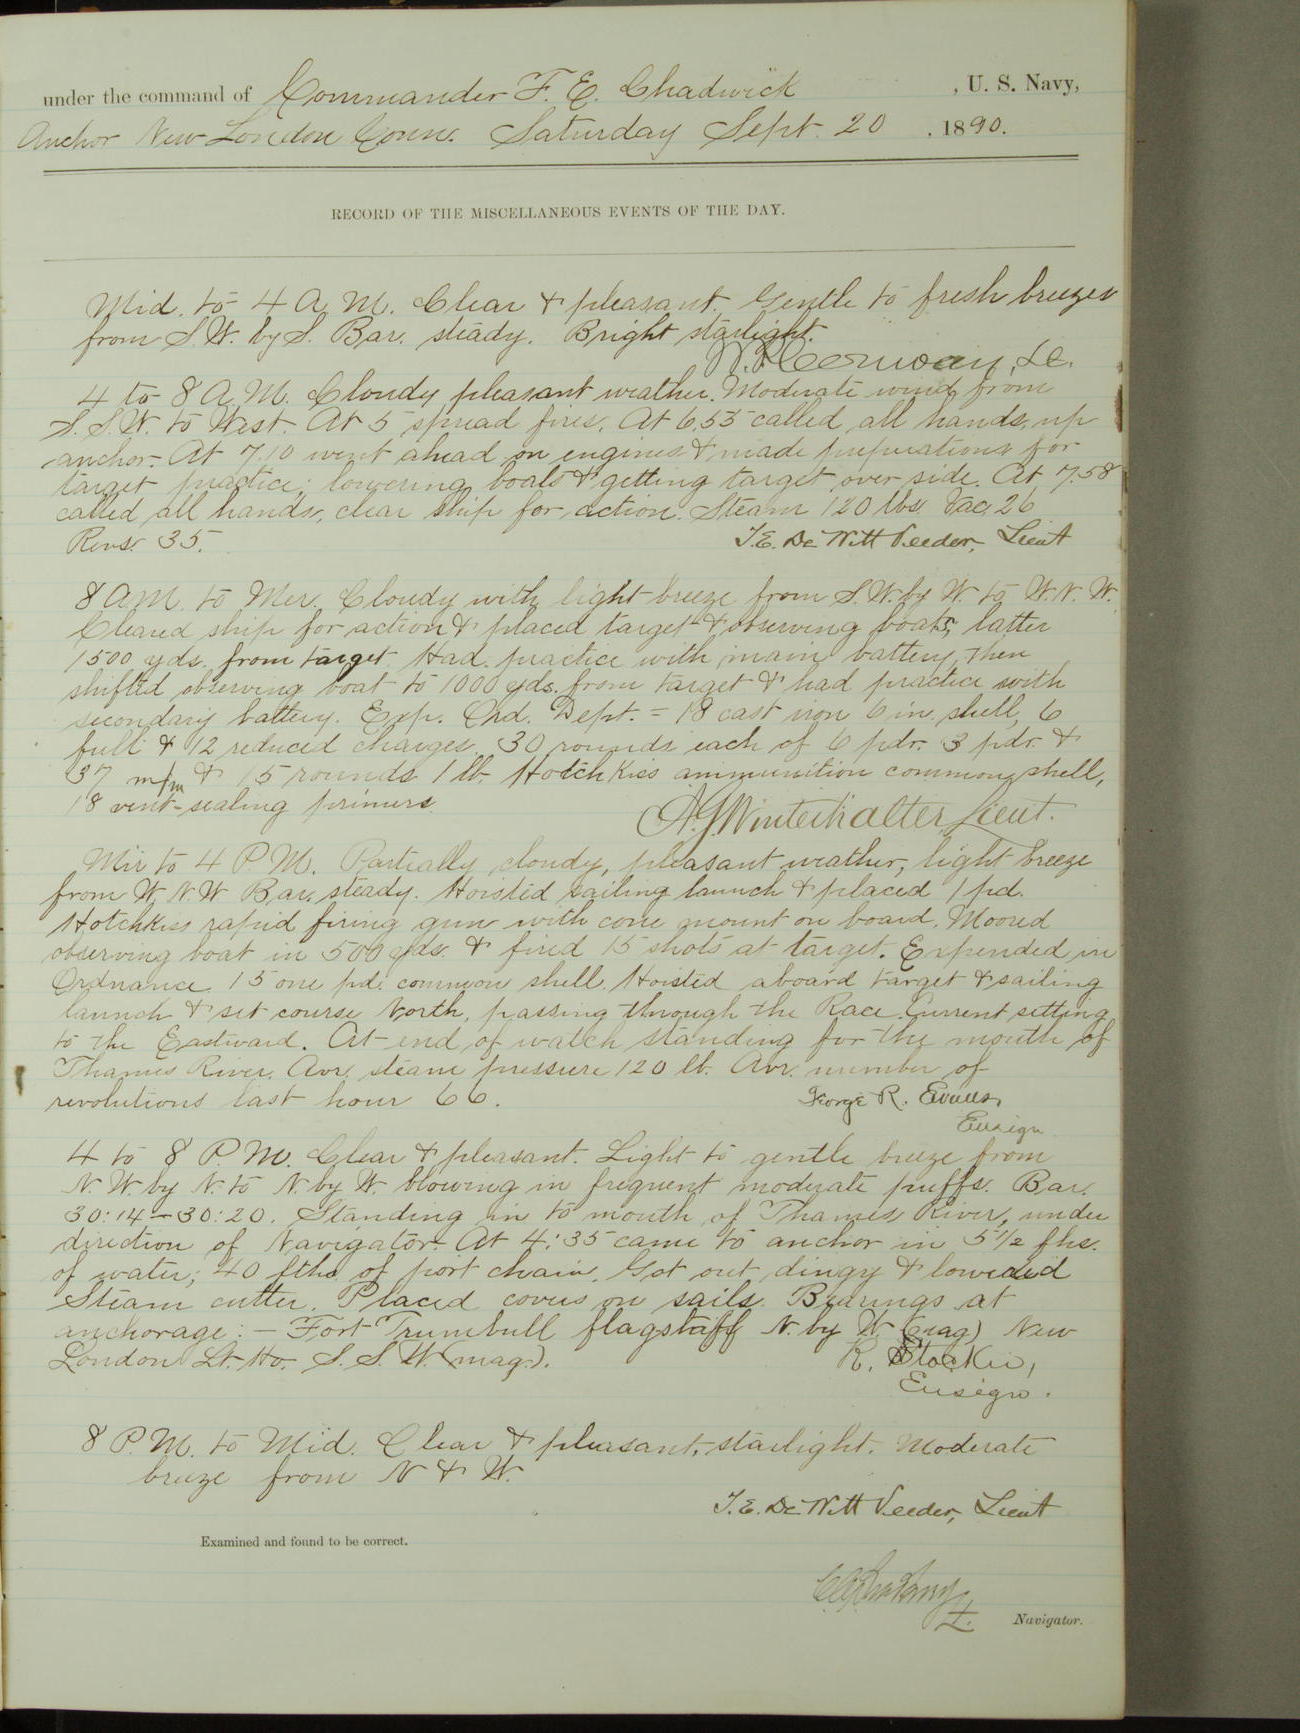 under the command of Commander F. E. Chadwick , U. S. Navy,
Anchor New London Conn. Saturday Sept. 20 , 1890.
RECORD OF THE MISCELLANEOUS EVENTS OF THE DAY.
Mid. to 4 A.M. Clear & pleasant. Gentle to fresh breezes
from S.W. by S. Bar. steady. Bright starlight.
4 to 8 A.M. Cloudy pleasant weather. Moderate wind from
S.S.W. to West. At 5 spread fires. At 6.55 called all hands, up
anchor. At 7.10 went ahead on engines & made preparations for
target practice; lowering boats & getting target over side. At 7.58
called all hands, clear ship for action. Steam 120 lbs. Vac. 26
Revs. 35. T.E. DeWitt Veeder, Lieut
8 A.M. to Mer. Cloudy with light breeze from S.W. by W. to W.N.W.
Cleared ship for action & placed target & observing boats, latter
1500 yds. from target. Had practice with main battery, then
shifted observing boat to 1000 yds. from target & had practice with
secondary battery. Exp. Ord. Dept. = 18 cast iron 6 in. shell, 6
full & 12 reduced charges, 30 rounds each of 6 pdr. 3 pdr. &
37 m/m & 15 rounds 1 lb. Hotchkiss ammunition common shell,
18 vent-sealing primers
A.G. Winterhalter Lieut.
Mer to 4 P.M. Partially cloudy, pleasant weather, light breeze
from W.N.W Bar. steady. Hoisted sailing launch & placed 1 pd.
Hotchkiss rapid firing gun with cone mount on board. Moored
observing boat in 500 yds. & fired 15 shots at target. Expended in
Ordnance 15 one pd. common shell. Hoisted aboard target & sailing
launch & set course North, passing through the Race. Current setting
to the Eastward. At end of watch standing for the mouth of
Thames River. Avr. steam pressure 120 lb. Avr. number of
revolutions last hour 66. George R. Evans,
Ensign
4 to 8 P.M. Clear & pleasant. Light to gentle breeze from
N.W. by N. to N. by W. blowing in frequent moderate puffs. Bar.
30:14 — 30:20. Standing in to mouth of Thames River, under
direction of Navigator. At 4:35 came to anchor in 5 1/2 fhs.
of water; 40 fths of port chain. Got out dingy & lowered
Steam cutter. Placed covers on sails. Bearings at
anchorage: — Fort Trumbull flagstaff N. by W. (mag) New
London Lt. Ho. S.S.W. (mag.). R.
Ensign.
8 P.M. to Mid. Clear & pleasant, starlight. Moderate
breeze from N & W.
T.E. DeWitt Veeder, Lieut
Examined and found to be correct.
Navigator.